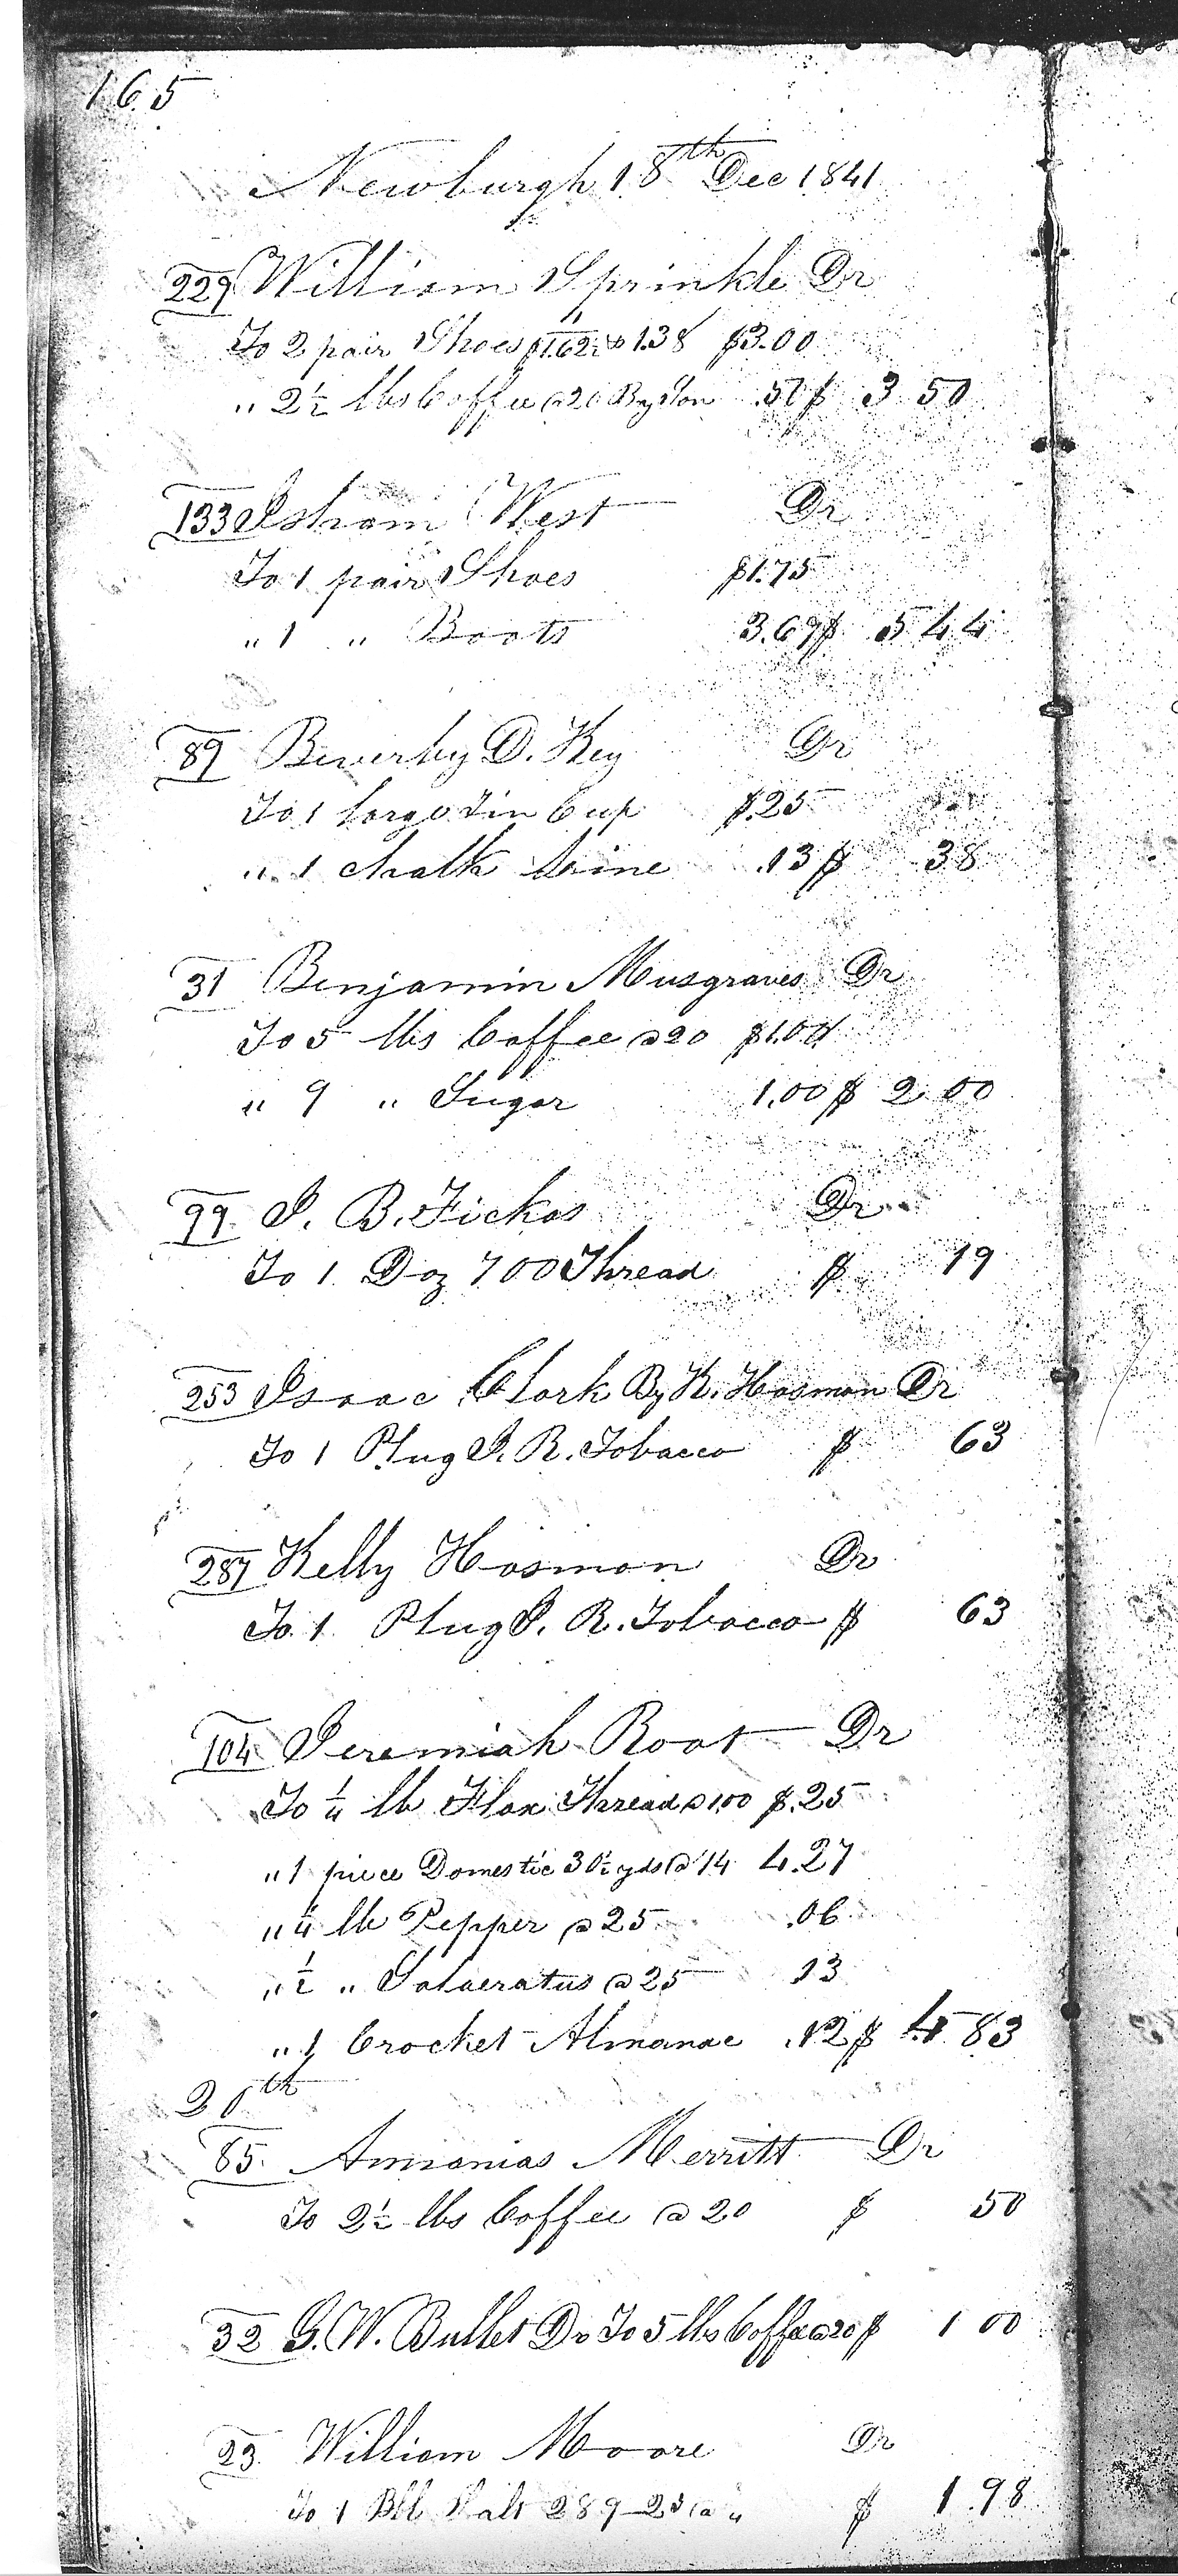 165
Newburgh 18th Dec 1841
229 William Sprinkle Dr
To 2 pair Shoes $1.62½ & 1.38 $3.00
" 2½ lbs Coffee @ 20 By Son .50 $ 3 50
133 Isham West Dr
To 1 pair Shoes $1.75
" 1 " Boots 3.69 $ 5 44
89 Beverly D. Key Dr
To 1 large Tin Cup $.25
" 1 chalk Line .13 $ 38
31 Benjamin Musgraves Dr
To 5 lbs Coffee @ 20 $1.00
" 9 " Sugar 1.00 $ 2 00
99 I. B. Fickas Dr
To 1 Doz 700 Thread $ 19
253 Isaac Clark By K. Hosman Dr
To 1 Plug J. R. Tobacco $ 63
287 Kelly Hosman Dr
To 1 Plug J. R. Tobacco $ 63
104 Jeremiah Root Dr
To ¼ lb Flax Thread @ 1.00 $.25
" 1 piece Domestic 30½ yds @ 14 4.27
" ¼ lb Pepper @ 25 .06
" ½ " Salaeratus @ 25 13
" 1 Crocket Almanac .12 $ 4 83
20th
85 Annanias Merritt Dr
To 2½ lbs Coffee @ 20 $ 50
32 G. W. Bullet Dr To 5 lbs Coffee @ 20 $ 1 00
23 William Moore Dr
To 1 Bbl Salt 289-25 @ $ 1.98